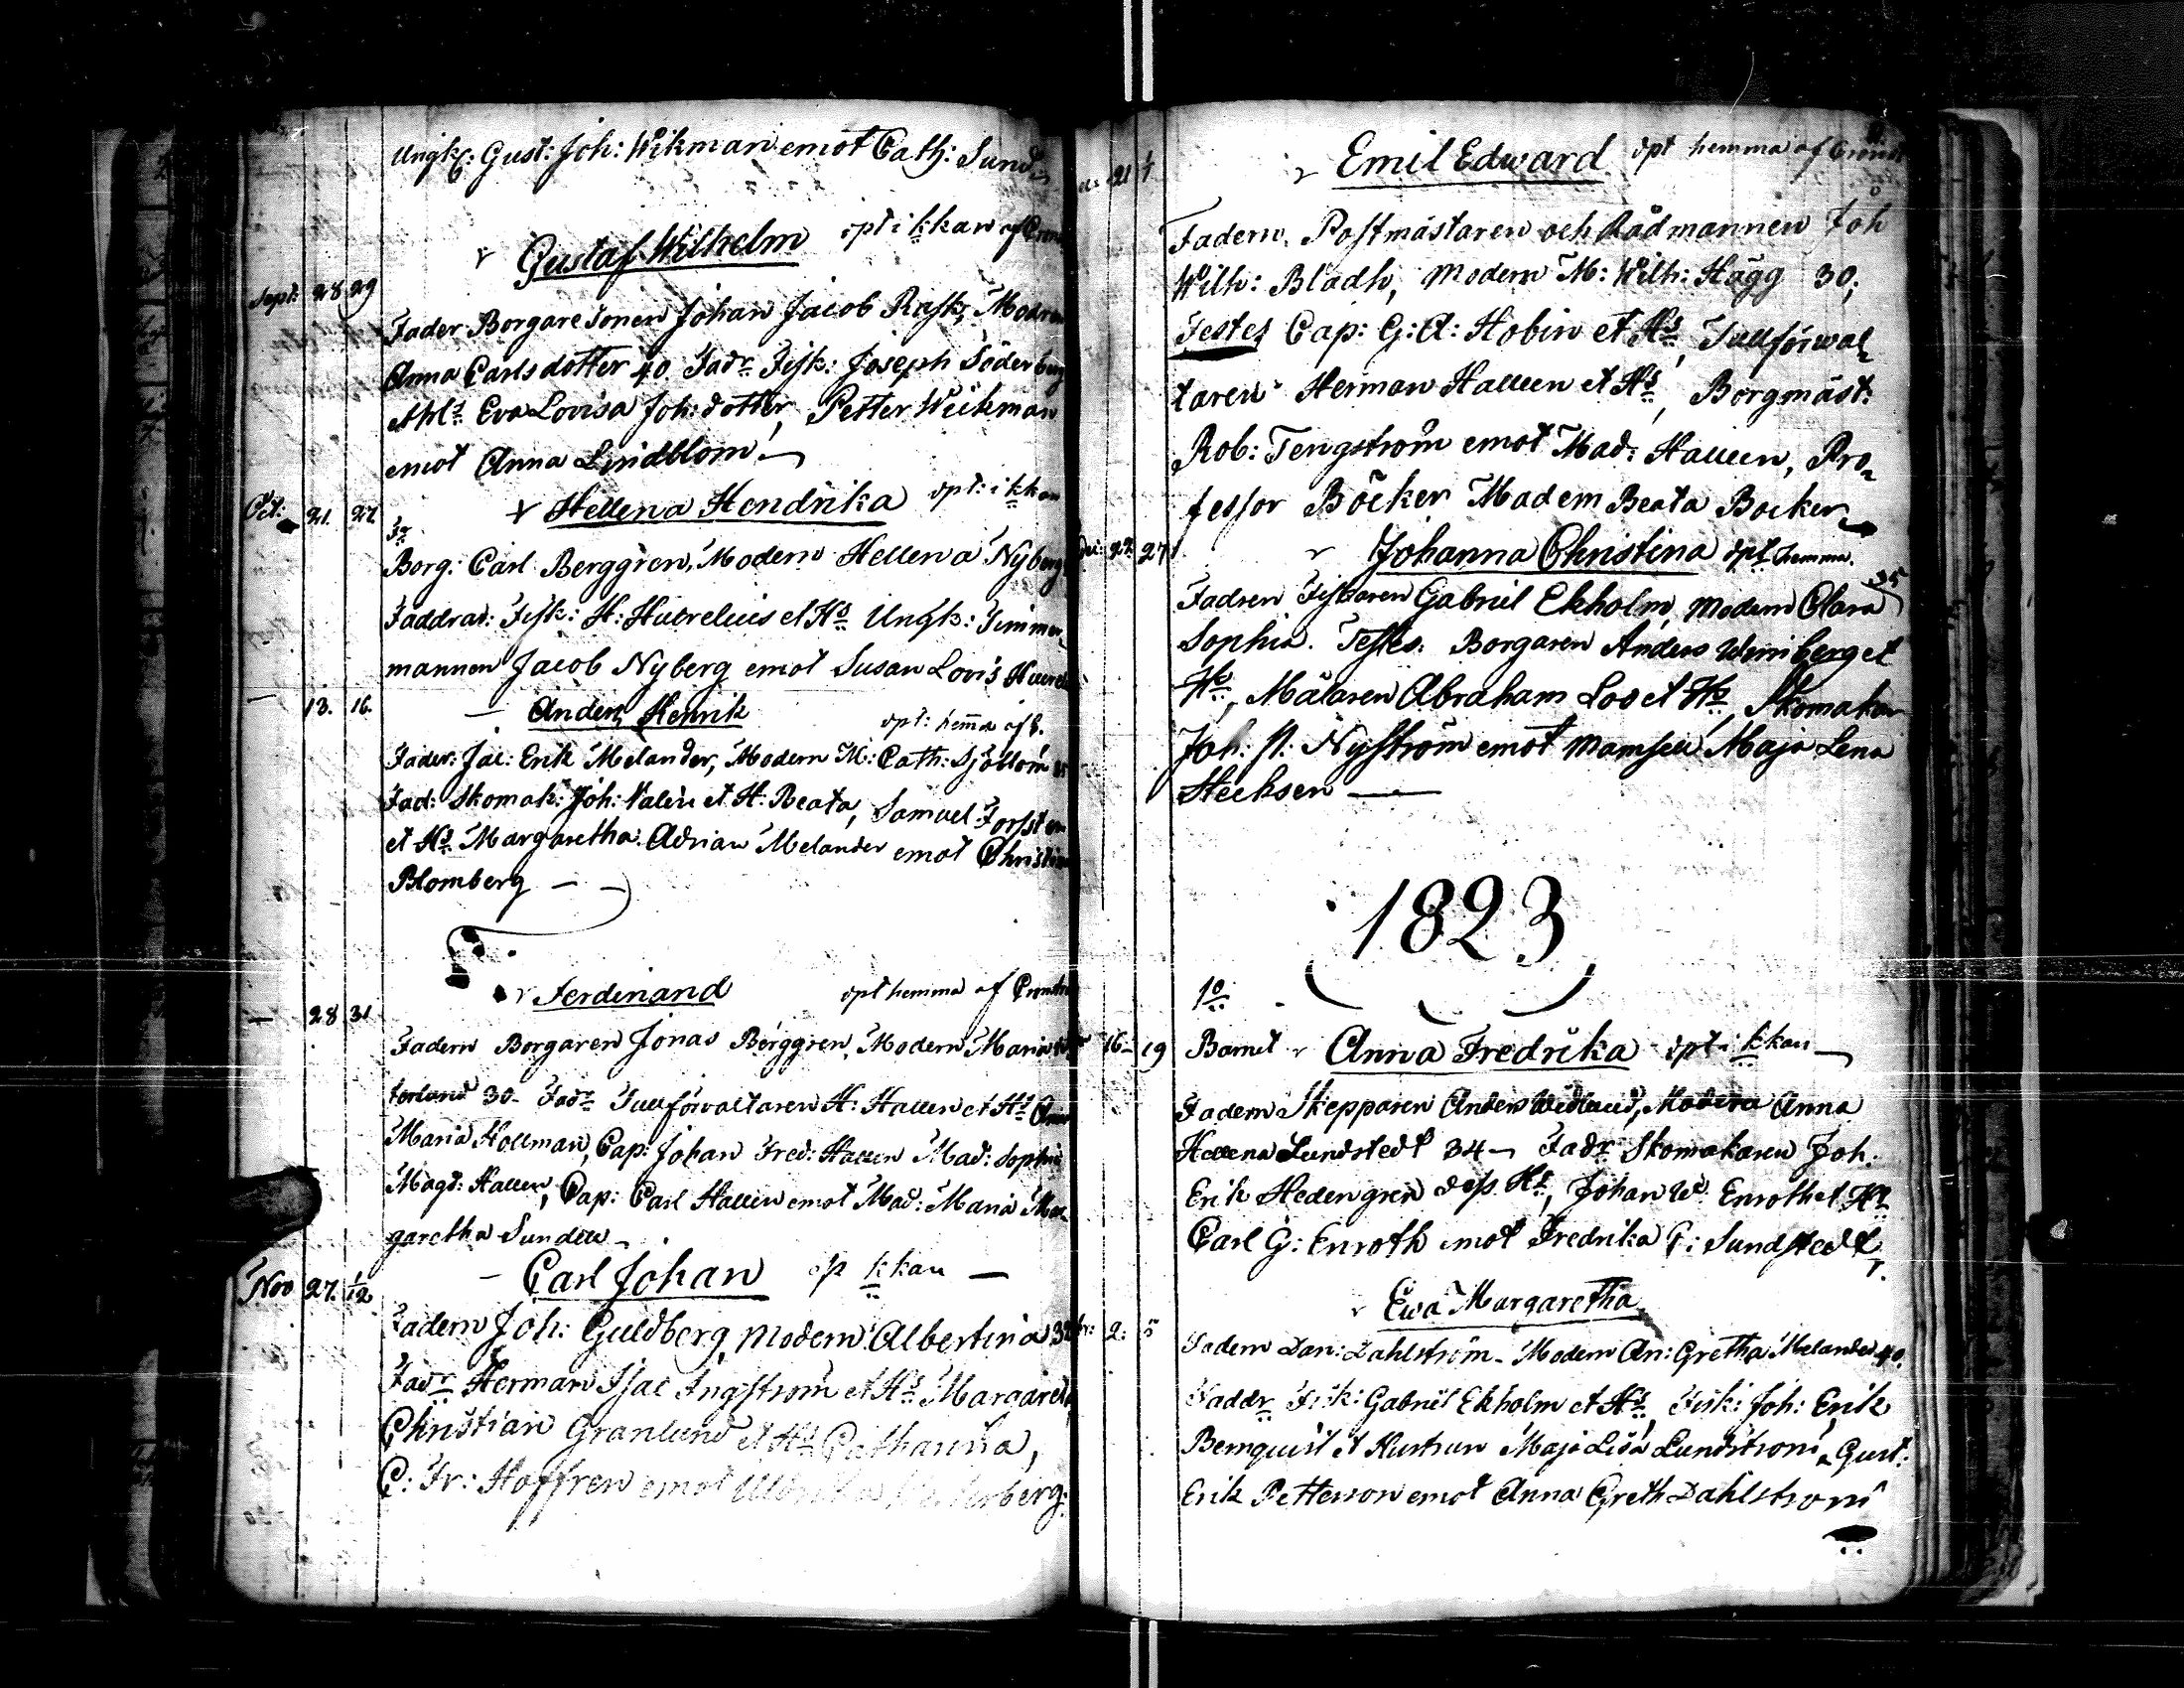 Ungk: Gust: Joh: Wikman emot Cath: Sund
Gustaf Wilhelm opt i kkan af Cron
Sept: 28 29
Fader Borgare Sonen Johan Jacob Rask, Modren
Anna Carlsdotter 40 Fadr Fisk: Joseph Söderberg
Eva Lovisa Joh:dotter, Petter Wikman
emot Anna Lindblom
Hellena Hendrika opt: i kkan
Oct: 21. 27 Fr
Borg: Carl Berggren, Modern Hellena Nyberg
Faddrar: Fisk: H: Huvrelius et Hs Ungk: Timmer
mannen Jacob Nyberg emot Susan Lovis
13. 16. Anders Henrik opt: hema af C.
Fader: Jac: Erik Melander, Modern M: Cath: Sjöblom
Fad: Skomak: Joh: Valin et H: Beata, Samuel Forsström
et Hs Margaretha. Adrian Melander emot Christin
Blomberg
Ferdinand opt hemma af
28 31
Fadern Borgaren Jonas Berggren, Modern Maria
30 Fadr Tullförvaltaren H: Hallen et Hs
Maria Hollman, Cap: Johan Fred: Hallen Mad: Sophia
Magd: Hallen, Cap: Carl Hallen emot Mad: Maria Mar
garetha Sundell
Carl Johan op kkan
Nov 27. 1/12
Fadern Joh: Guldberg, modern Albertina 32
Fadr Herman Isac Ingström et Hs Margaretha
Christian Granlund et Hs Catharina,
C: Fr: Hoffren emot
Emil Edward opt hemma af Cronst
21 1/1
Fadern, Postmästaren och Rådmannen Joh
Wilh: Bladh, Modern M: Wilh: Hägg 30;
Testes Cap: G: A: Hobin et Hs, Tullförwal
taren Herman Hallen et Hs, Borgmäst:
Rob: Tengström emot Mad: Hallen, Pro
fessor Böcker Madem Beata Bocker
22 27 Johanna Christina opt hemma.
Fadren Fiskaren Gabriel Ekholm, Modern Clara 35
Sophia. Testes. Borgaren Anders Weinberg et
Hs, Målaren Abraham Loo et Hs, Skomakar
Joh: A: Nyström emot Mamsell Maja Lena
Heeksen
1823
1o
16 19 Barnet Anna Fredrika opt i kkan
Fadern Skepparen Anders Widlund, Modren Anna
Hellena Lundstedt 34 Fadr Skomakaren Joh.
Erik Hedengren dess Hs, Johan W Enroth et Hs
Carl G: Enroth emot Fredrika C: Sundstedt
Ewa Margaretha
2: 5
Fadern Dan: Dahlström. Modern An: Gretha Melander 40.
Faddr Fisk: Gabriel Ekholm et Hs, Fisk: Joh: Erik
Bernquist et Hustrun Maja Lisa Lundström, Gust:
Erik Petterson emot Anna Greth Dahlström